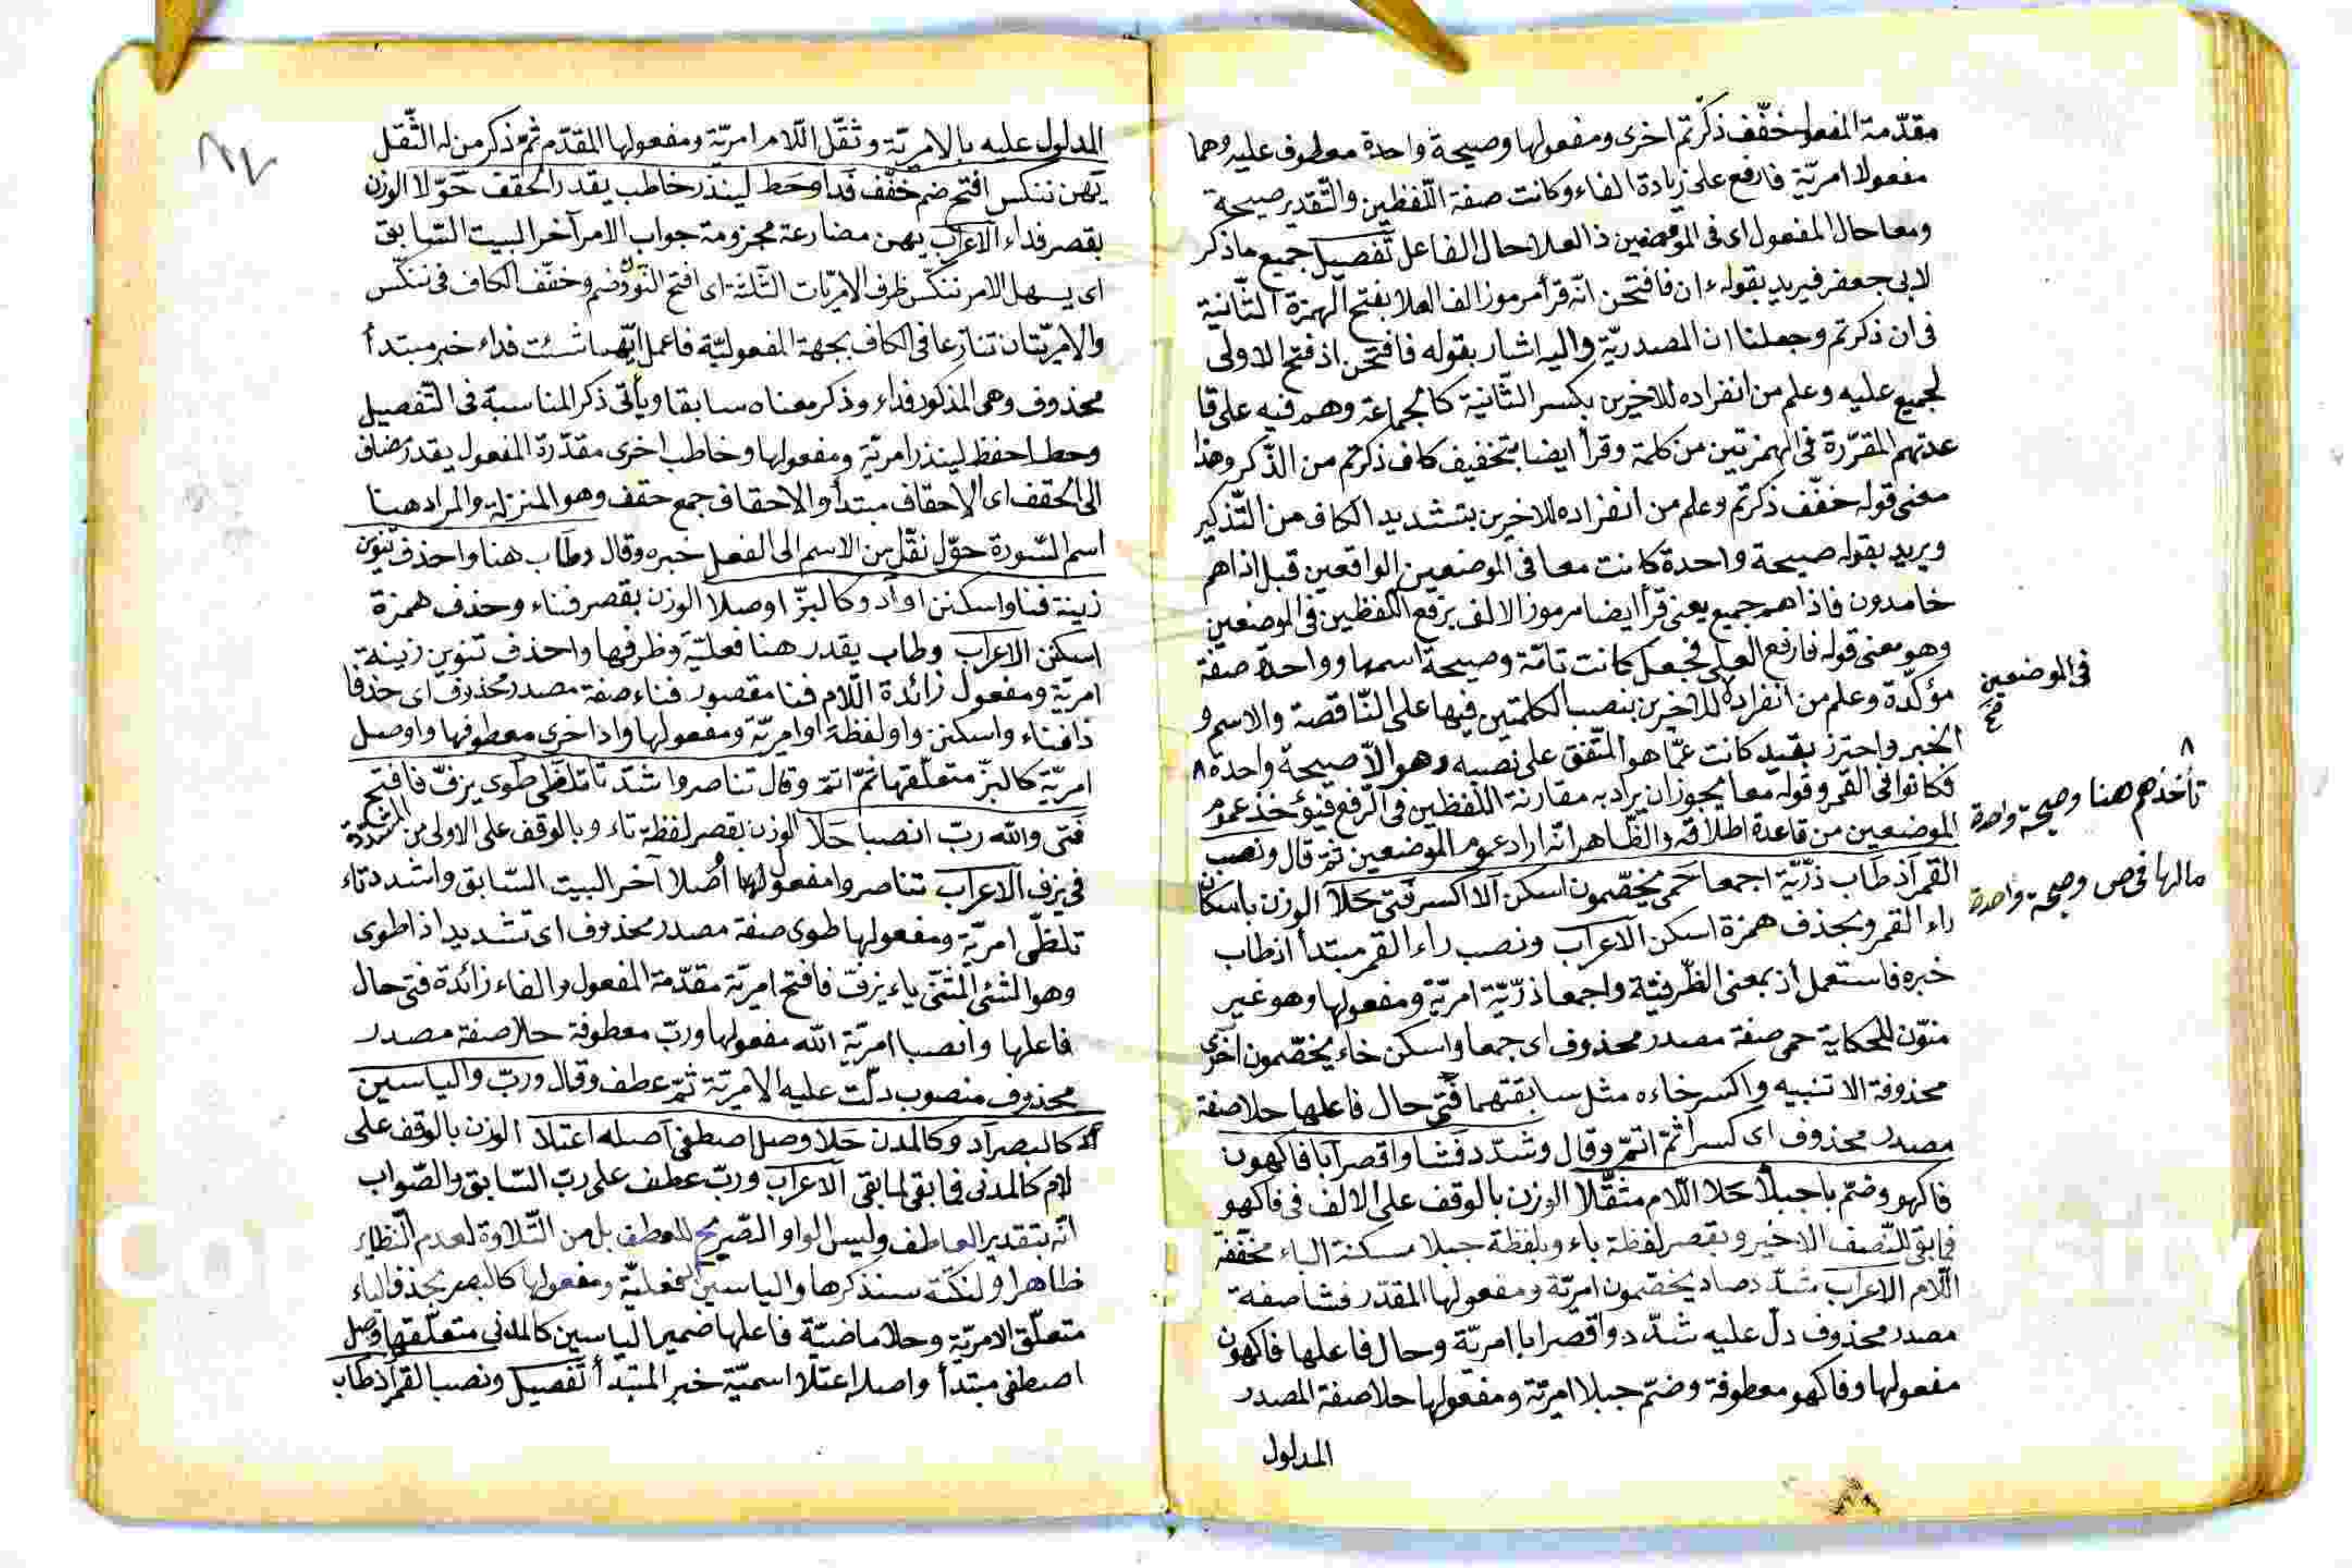 مقدّمة المفعول خفّف ذكّرتم اخرى ومفعولها وصيحة واحدة معطوف عليه وهما
مفعولا امريّة فارفع على زيادة الفاء وكانت صفة اللّفظين والتّقدير صيحة
ومعا حال المفعول اى فى الموضعين ذا العلا حال الفاعل تفصيل جميع ما ذكر
لابى جعفر فيريد بقوله ء ان فافتحن انّه قرأ مرموز الف العلا بفتح الهمزة الثّانية
فى ان ذكرتم وجعلنا ان المصدريّة واليه اشار بقوله فافتحن اذ فتح الاولى
لجميع عليه وعلم من انفراده للاخيرين بكسر الثّانية كالجماعة وهم فيه على قا
عدتهم المقرّرة فى الهمزتين من كلمة وقرأ ايضا بتخفيف كاف ذكرتم من الذّكر وهذا
معنى قوله خفّف ذكرتم وعلم من انفراده للاخيرين بتشديد الكاف من التّذكير
ويريد بقوله صيحة واحدة كانت معا فى الموضعين الواقعين قبل اذا هم
خامدون فاذا هم جميع يعنى قرأ ايضا مرموز الالف برفع اللّفظين فى الموضعين
وهو معنى قوله فارفع العلى فجعل كانت تامّة وصيحة اسمها وواحدة صفة
مؤكّدة وعلم من انفراده للاخيرين بنصب الكلمتين فيها على النّاقصة والاسم و
الخبر واحترز بقيد كانت عمّا هو المتّفق على نصبه وهو الاّ صيحة واحدة ٨
فكانوا فى القمر وقوله معا يجوز ان يراد به مقارنة اللّفظين فى الرّفع فيؤخذ عموم
الموضعين من قاعدة اطلاقه والظّاهر انّه اراد عموم الموضعين ثمّ قال ونصب
القمر اذ طاب ذرّيّة اجمعا حمى يخصّمون اسكن آلا اكسر فتى حلا الوزن باسكان
راء القمر وبحذف همزة اسكن الاعراب ونصب راء القمر مبتدأ اذ طاب
خبره فاستعمل اذ بمعنى الظّرفيّة واجمعا ذرّيّة امريّة ومفعولها وهو غير
منوّن للحكاية حمى صفة مصدر محذوف اى جمعا واسكن خاء يخصّمون اخرى
محذوفة الا تنبيه واكسر خاءه مثل سابقتهما فتى حال فاعلها حلا صفة
مصدر محذوف اى كسرا ثمّ اتمّ وقال وشدّد فشا واقصر ابا فاكهون
فاكهو وضمّ با جبلا حلا اللّام مثقّلا الوزن بالوقف على الالف فى فاكهو
فابقى للنّصف الاخير وبقصر لفظة باء وبلفظة جبلا مسكنة الباء مخفّفة
اللّام الاعراب شدّد صاد يخصّمون امريّة ومفعولها المقدّر فشا صفة
مصدر محذوف دلّ عليه شدّد واقصر ابا امريّة وحال فاعلها فاكهون
مفعولها وفاكهو معطوفة وضمّ جبلا امريّة ومفعولها حلا صفة المصدر
المدلول
فى الموضعين
صح
٨
تأخذهم هنا وصيحة واحدة
مالها فى ص وصيحة واحدة
المدلول عليه بالامريّة وثقّل اللّام امريّة ومفعولها المقدّم ثمّ ذكر من له الثّقل
يهن ننكس افتح ضم خفّف فدا وحط لينذر خاطب يقدر الحقف حوّلا الوزن
بقصر فداء الاعراب يهن مضارعة مجزومة جواب الامر آخر البيت السّابق
اى يسهل الامر ننكّس ظرف الامريّات الثّلثة اى افتح النّون وضم وخفّف الكاف فى ننكّس
والامريّتان تنازعا فى الكاف بجهة المفعوليّة فاعمل ايّهما شئت فداء خبر مبتدأ
محذوف وهى المذكور فداء وذكر معناه سابقا ويأتى ذكر المناسبة فى التّفصيل
وحط احفظ لينذر امريّة ومفعولها وخاطب اخرى مقدّرة المفعول يقدر مضاف
الى الحقف اى الاحقاف مبتدأ والاحقاف جمع حقف وهو المنزلة والمراد هنا
اسم السّورة حوّل نقّل من الاسم الى الفعل خبره وقال وطاب هنا واحذف تنوين
زينة فنا واسكنن او أد وكالبزّ اوصلا الوزن بقصر فناء وحذف همزة
اسكن الاعراب وطاب يقدر هنا فعليّة وظرفها واحذف تنوين زينة
امريّة ومفعول زائدة اللّام فنا مقصور فناء صفة مصدر محذوف اى حذفا
ذا فناء واسكنن واو لفظة او امريّة ومفعولها واد اخرى معطوفها واوصل
امريّة كالبزّ متعلّقها ثمّ اتمّ وقال تناصروا اشدد تا تلظّى طوى يزفّ فافتح
فتى والله ربّ انصبا حلا الوزن بقصر لفظة تاء وبالوقف على الاولى من المشدّدة
فى يزف الاعراب تناصروا مفعول لها اصلا آخر البيت السّابق واشدد تاء
تلظّى امريّة ومفعولها طوى صفة مصدر محذوف اى تشديدا ذا طوى
وهو الشئ المثنّى ياء يزفّ فافتح امريّة مقدّمة المفعول والفاء زائدة فتى حال
فاعلها وانصبا امريّة الله مفعولها وربّ معطوفة حلا صفة مصدر
محذوف منصوب دلّت عليه الامريّة ثمّ عطف وقال وربّ والياسين
كالبصر أد وكالمدن حلا وصل اصطفى اصله اعتلا الوزن بالوقف على
لام كالمدنى فابقى لما بقى الاعراب وربّ عطف على ربّ السّابق والصّواب
انّه بتقدير العاطف وليس الواو الصّريح للعطف بل من التّلاوة لعدم النّظاير
ظاهرا ولنكتة سنذكرها والياسين الفعليّة ومفعولها كالبصر بحذف الياء
متعلّق الامريّة وحلا ماضيّة فاعلها ضمير الياسين كالمدنى متعلّقها وصل
اصطفى مبتدأ واصله اعتلا اسميّة خبر المبتدأ تفصيل ونصب القمر اذ طاب